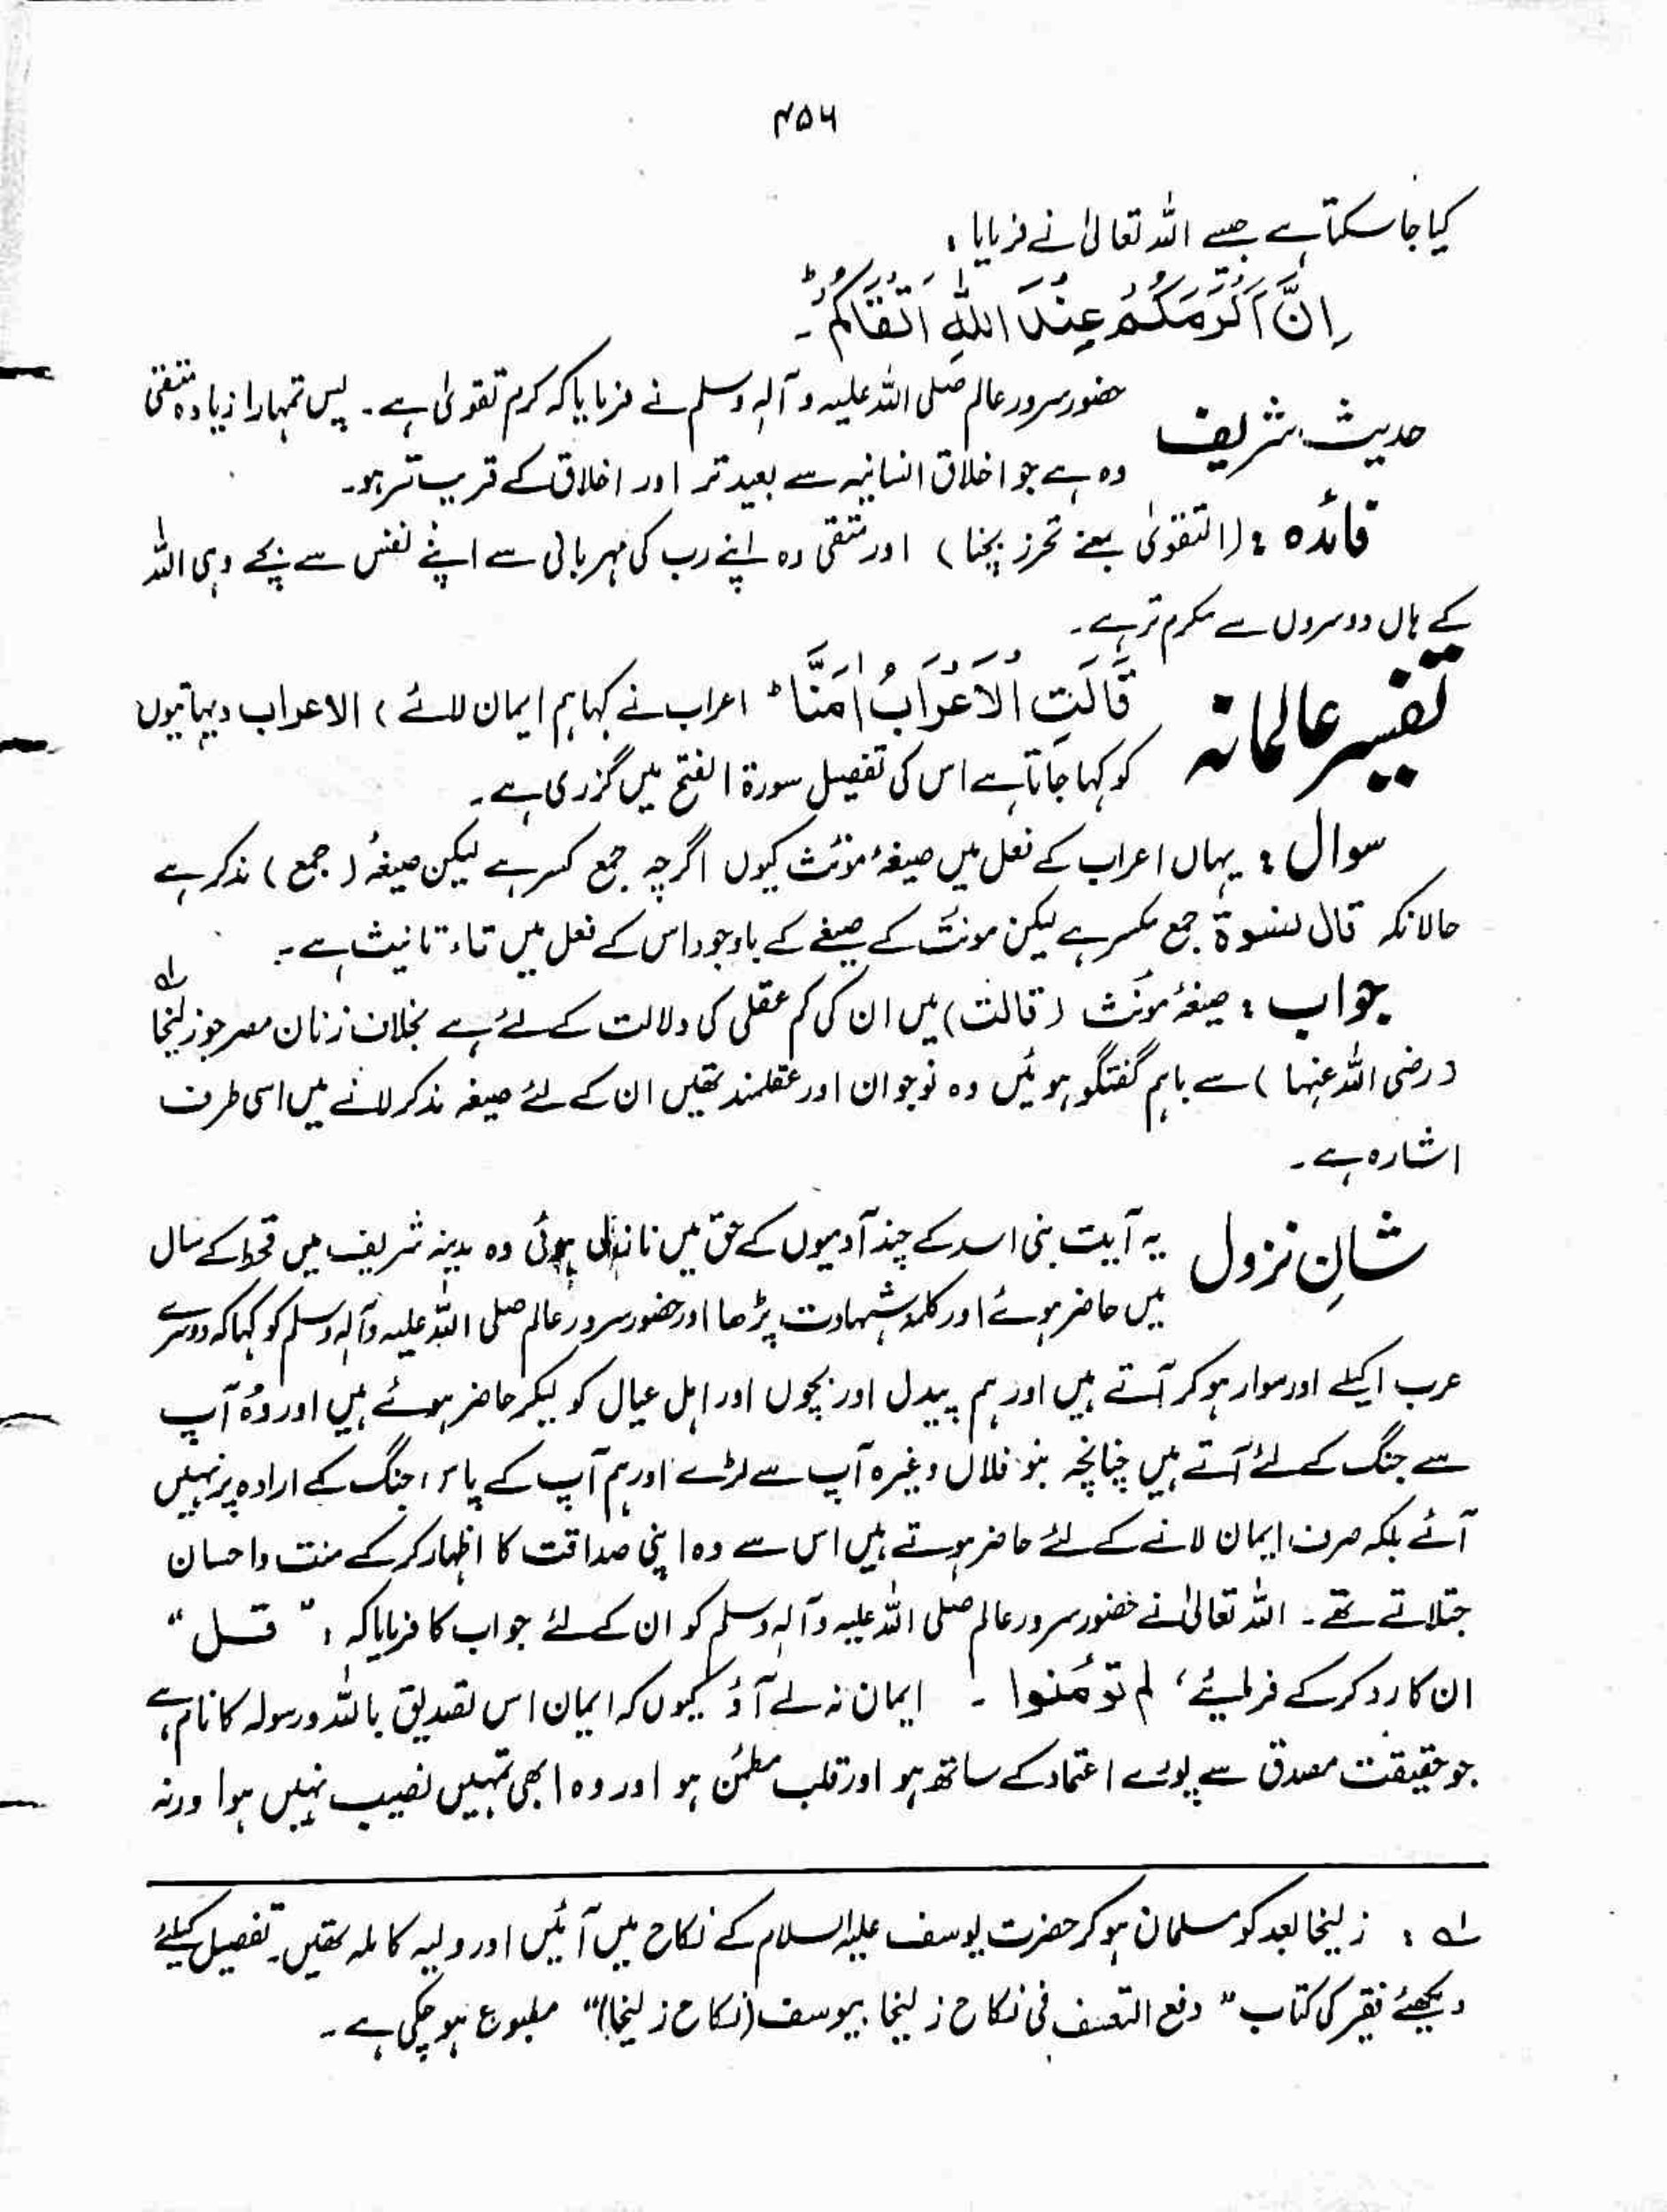 ۴۵۶
کیا جا سکتا ہے جسے اللہ تعالیٰ نے فرمایا :
اِنَّ اَکْرَمَکُمْ عِنْدَ اللّٰہِ اَتْقَاکُمْ ۔
حدیث شریف حضور سرور عالم صلی اللہ علیہ وآلہ وسلم نے فرمایا کہ کرم تقویٰ ہے ۔ پس تمہارا زیادہ متقی
وہ ہے جو اخلاق انسانیہ سے بعید تر اور اخلاق کے قریب تر ہو۔
فائدہ : (التقویٰ بمعنے تحرز بچنا) اور متقی وہ اپنے رب کی مہربانی سے اپنے نفس سے بچے وہی اللہ
کے ہاں دوسروں سے مکرم تر ہے ۔
تفسیر عالمانہ قَالَتِ الْاَعْرَابُ اٰمَنَّا ؕ اعراب نے کہا ہم ایمان لائے ) الاعراب دیہاتیوں
کو کہا جاتا ہے اس کی تفصیل سورۃ الفتح میں گزری ہے ۔
سوال : یہاں اعراب کے فعل میں صیغۂ مؤنث کیوں اگرچہ جمع کسر ہے لیکن صیغۂ (جمع) مذکر ہے
حالانکہ قال نسوۃ جمع مکسر ہے لیکن مونث کے صیغے کے باوجود اس کے فعل میں تاء تانیث ہے ۔
جواب : صیغۂ مؤنث (قالت) میں ان کی کم عقلی کی دلالت کے لئے ہے بخلاف زنان مصر جو زلیخا ؎۱
(رضی اللہ عنہا) سے باہم گفتگو ہوئیں وہ نوجوان اور عقلمند تھیں ان کے لئے صیغہ مذکر لانے میں اسی طرف
اشارہ ہے ۔
شانِ نزول یہ آیت بنی اسد کے چند آدمیوں کے حق میں نازل ہوئی وہ مدینہ شریف میں قحط کے سال
میں حاضر ہوئے اور کلمہ شہادت پڑھا اور حضور سرور عالم صلی اللہ علیہ وآلہ وسلم کو کہا کہ دوسرے
عرب اکیلے اور سوار ہو کر آتے ہیں اور ہم پیدل اور بچوں اور اہل عیال کو لیکر حاضر ہوئے ہیں اور وہ آپ
سے جنگ کے لئے آتے ہیں چنانچہ بنو فلاں وغیرہ آپ سے لڑے اور ہم آپ کے پاس جنگ کے ارادہ پر نہیں
آئے بلکہ صرف ایمان لانے کے لئے حاضر ہوتے ہیں اس سے وہ اپنی صداقت کا اظہار کر کے منت و احسان
جتلاتے تھے ۔ اللہ تعالیٰ نے حضور سرور عالم صلی اللہ علیہ وآلہ وسلم کو ان کے لئے جواب کا فرمایا کہ : " قل "
ان کا رد کر کے فرمایئے ، لم تؤمنوا ۔ ایمان نہ لے آؤ کیوں کہ ایمان اس تصدیق باللہ ورسولہ کا نام ہے
جو حقیقت مصدق سے پورے اعتماد کے ساتھ ہو اور قلب مطمئن ہو اور وہ ابھی تمہیں نصیب نہیں ہوا ورنہ
؎۱ : زلیخا بعد کو مسلمان ہو کر حضرت یوسف علیہ السلام کے نکاح میں آئیں اور ولیہ کاملہ تھیں۔ تفصیل کیلئے
دیکھئے فقیر کی کتاب " دفع التعسف فی نکاح زلیخا بیوسف (نکاح زلیخا)" مطبوع ہو چکی ہے ۔